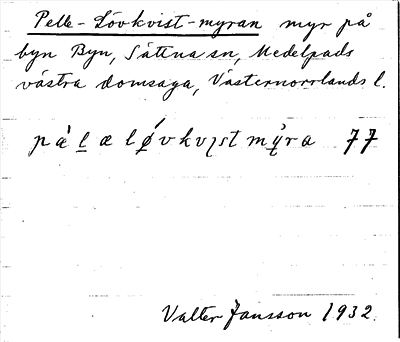 Pelle-Lövkvist-myran myr på
byn Byn, Sättna sn, Medelpads
västra domsaga, Västernorrlands l.
pälæ løvkvıstmyra 77
Valter Jansson 1932.